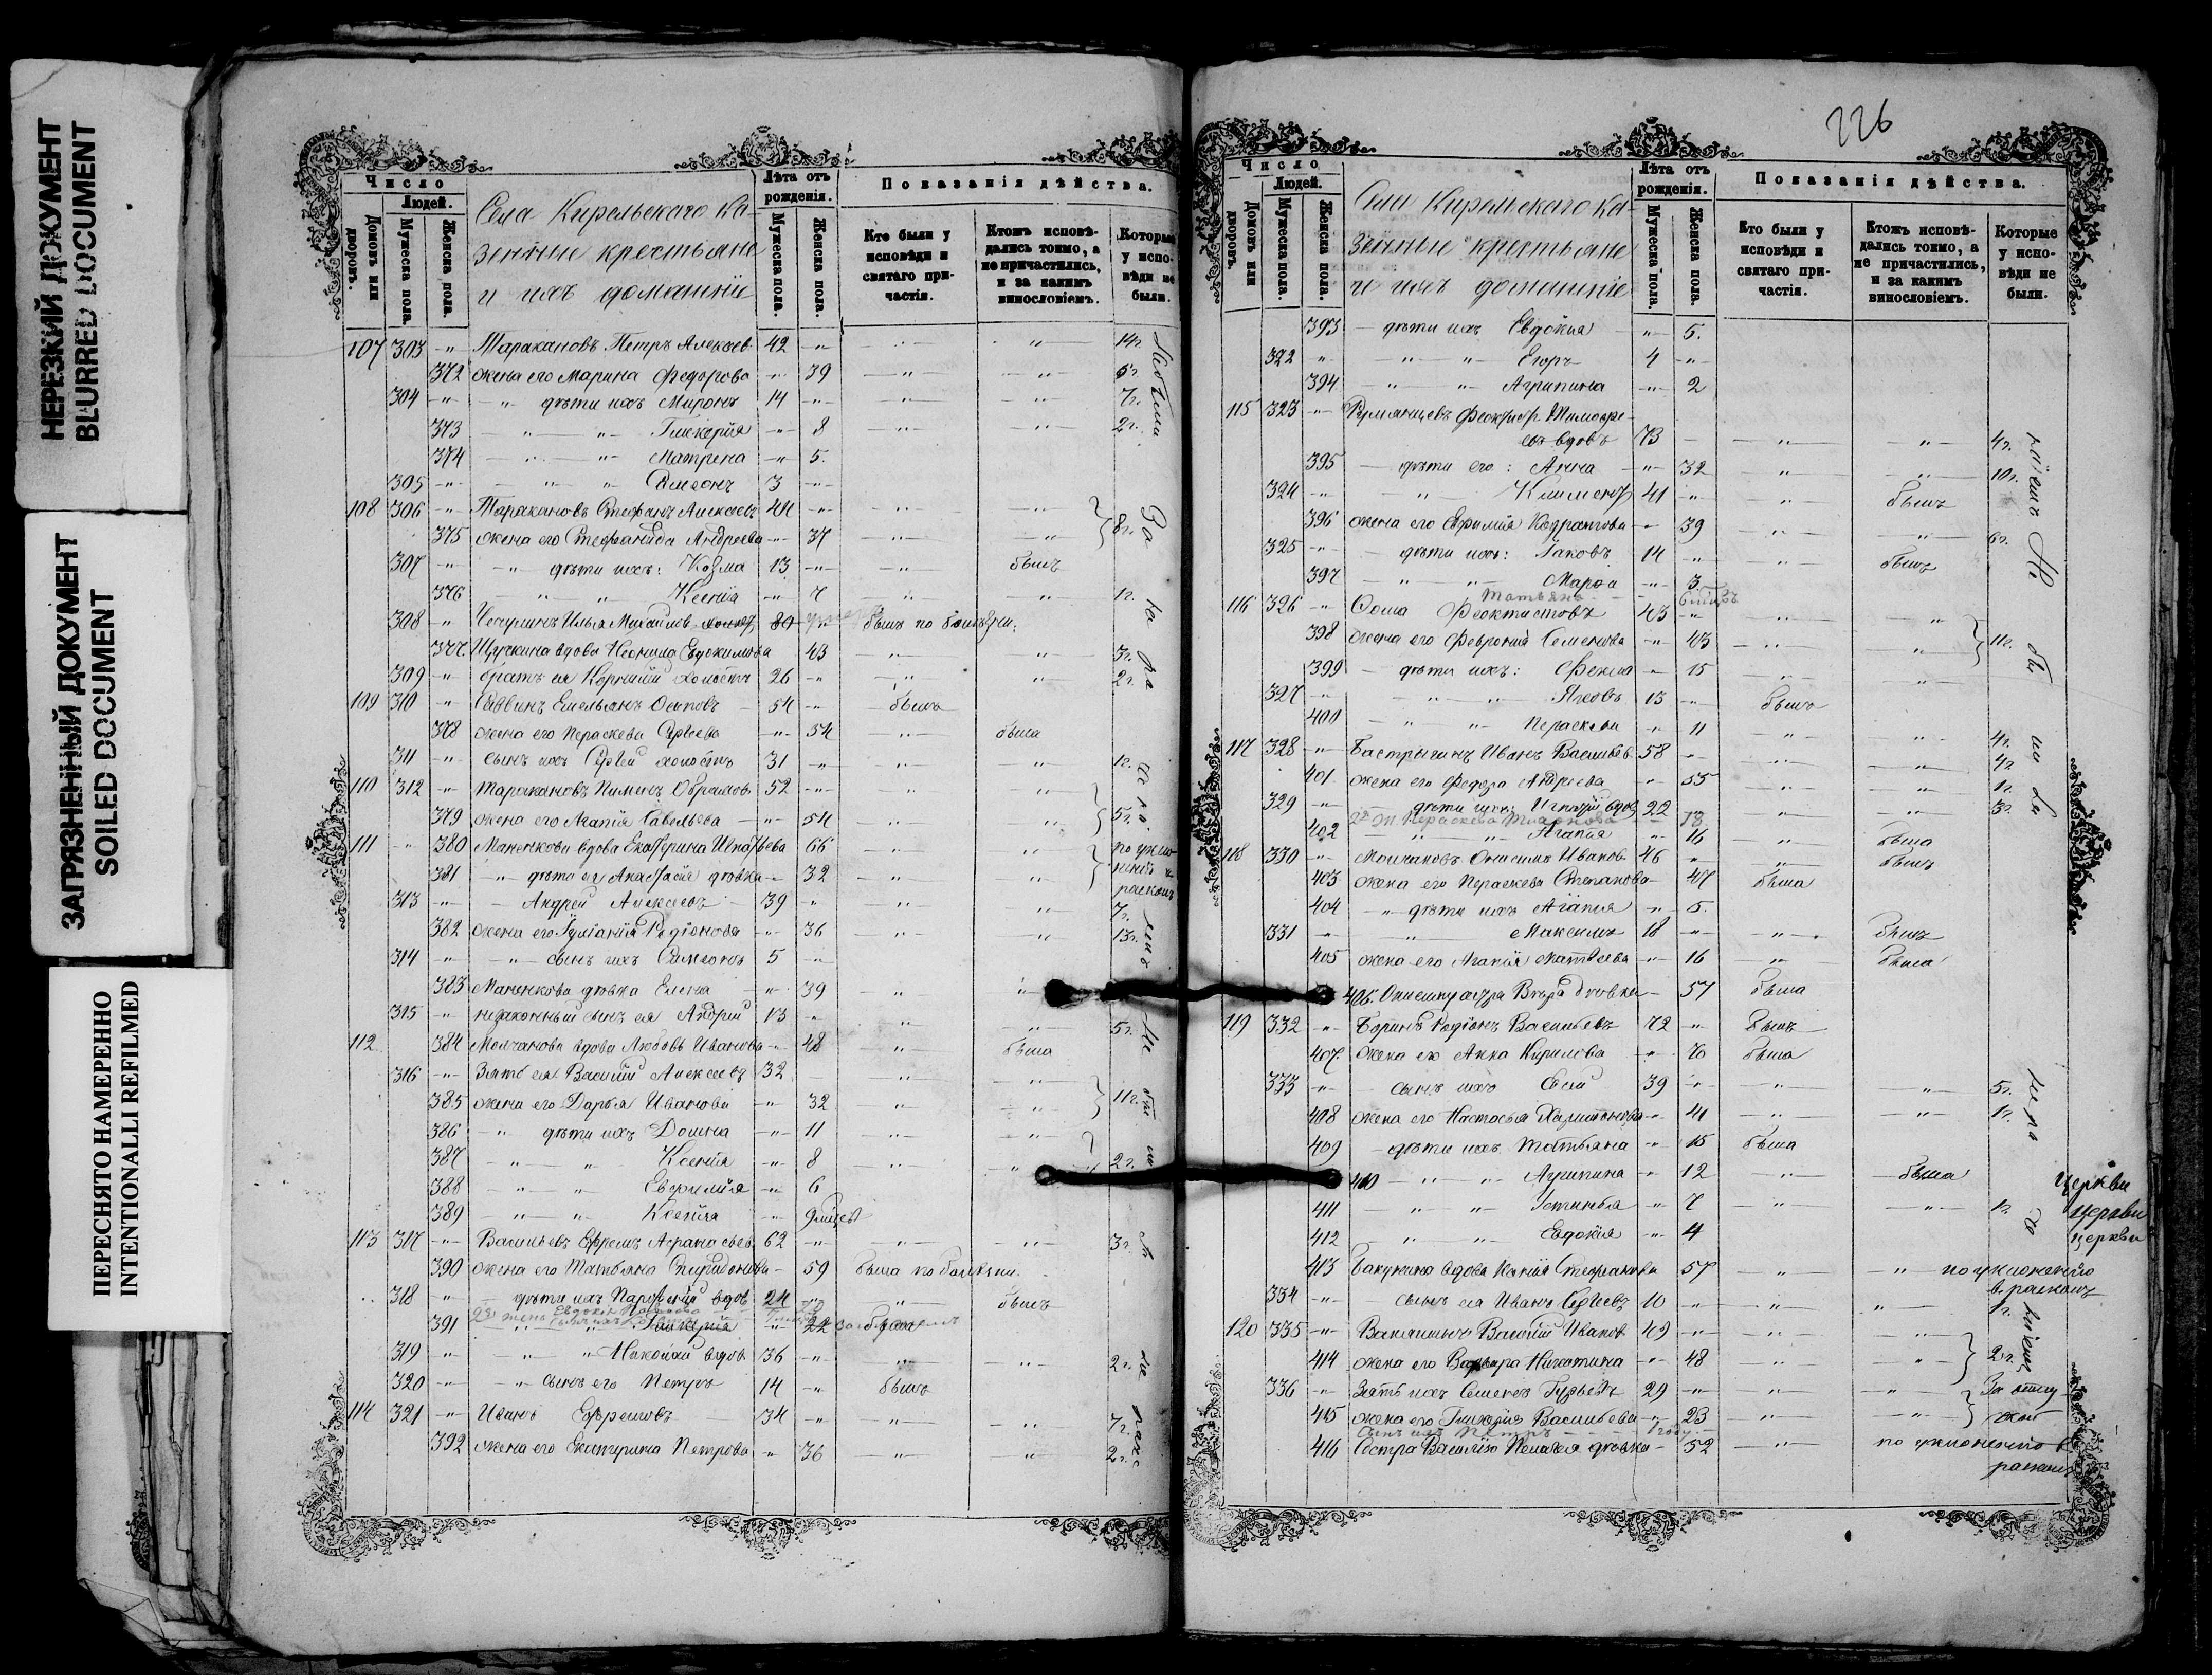 НЕРЕЗКИЙ ДОКУМЕНТ
BLURRED DOCUMENT
ЗАГРЯЗНЕННЫЙ ДОКУМЕНТ
SOILED DOCUMENT
ПЕРЕСНЯТО НАМЕРЕННО
INTENTIONALLI REFILMED
Число
Людей.
Домовъ или дворовъ.
Мужеска пола.
Женска пола.
Села Кирельскаго ка-
зенные крестьяне
и ихъ домашніе
Лѣта отъ рожденія.
Мужеска пола.
Женска пола.
Показанія дѣйства.
Кто были у исповѣди и святаго при-частія.
Ктожъ исповѣ-дались токмо, а не причастились, и за какимъ винословіемъ.
Которые у испо-вѣди не были.
107 303 -"- Таракановъ Петръ Алексѣев 42 -"- -"- -"- 14г.
372 жена его Марина Федорова -"- 39 -"- -"- 6г.
304 -"- -"- дѣти ихъ Миронъ 14 -"- -"- -"- 7г.
373 -"- -"- Гликерія -"- 8 -"- -"- 2г.
374 -"- -"- Матрена -"- 5.
305 -"- -"- -"- Симеонъ 3 -"-
108 306 -"- Таракановъ Стефанъ Алексѣевъ 41 -"- -"- -"- 8г.
375 жена его Стефанида Андреева -"- 37 -"- -"-
307 -"- -"- дѣти ихъ: Козма 13 -"- -"- былъ
376 -"- -"- Ксенія -"- 7 -"- -"- 1г.
308 -"- Илья Михайлов 80 былъ по болѣзни.
377. вдова Евдокимова 43 -"- -"- 3г.
309 -"- братъ ея холостъ 26 -"- -"- -"- 2г.
109 310 -"- Савинъ Емельянъ Осиповъ 54 -"- былъ
378 жена его Параскева -"- 54 -"- была
311 -"- сынъ ихъ Сергѣй холостъ 31 -"- -"- -"- 1г.
110 312 -"- Таракановъ Пименъ Обрамов 52 -"- -"- -"-
379 жена его Агапія Савельева -"- 54 -"- -"- 5г.
111 -"- 380 Маненкова вдова Екатерина Игнатьева 66 -"- -"- по укло-
381 -"- дѣти ея Анастасія дѣвка -"- 32 -"- -"- ненію в
расколъ
313 -"- Андрей Алексѣевъ 39 -"- -"- -"- 7г.
382 жена его Іуліанія Родіонова -"- 36 -"- -"- 13г.
314 -"- -"- сынъ ихъ Симеонъ 5 -"-
383 Маненкова дѣвка Елена -"- 39 -"- -"-
315 -"- незаконный сынъ ея Андрей 13 -"- -"- -"- 5г.
112 384 Молчанова вдова Любовь Иванова -"- 48 -"- была
316 -"- Зять ея Василій Алексѣевъ 32 -"- -"-
385 жена его Дарья Иванова -"- 32 -"- -"- 11г.
386 -"- дѣти ихъ Домна -"- 11 -"- -"-
387 -"- -"- Ксенія -"- 8 -"- -"- 2г.
388 -"- -"- Евфимія -"- 6
389 -"- -"- Ксенія -"- 9 мѣсец
113 317 -"- Васильевъ Ефремъ Афанасьев. 62 -"- -"- -"- 3г.
390 жена его Татьяна Спиридонова - 59 была по болѣзни.
318 -"- дѣти ихъ Парфеній вдов 24 -"- -"- былъ
391 -"- Гликерія -"- 22 была
319 -"- -"- Николай вдов 36 -"- -"- -"- 2г.
320 -"- -"- сынъ его Петръ 14 -"- былъ
114 321 -"- Иванъ Ефремовъ 34 -"- -"- -"- 7г.
392 жена его Екатерина Петрова -"- 36 -"- -"- 2г.
226
Число
Людей.
Домовъ или дворовъ.
Мужеска пола.
Женска пола.
Села Кирельскаго ка-
зенные крестьяне
и ихъ домашніе
Лѣта отъ рожденія.
Мужеска пола.
Женска пола.
Показанія дѣйства.
Кто были у исповѣди и святаго при-частія.
Ктожъ исповѣ-дались токмо, а не причастились, и за какимъ винословіемъ.
Которые у испо-вѣди не были.
393 - дѣти ихъ Евдокия -"- 5.
322 -"- -"- -"- Егоръ 4 -"-
394 -"- -"- Агрипина -"- 2
115 323 -"- Румянцевъ Тимофе-
евъ вдовъ 73 - -"- -"- 4г.
395 - дѣти его: Анна -"- 32 -"- -"- 10г.
324 -"- -"- Климентъ 41 -"- -"- былъ
396 жена его Ефимія Кодратова -"- 39 -"- -"- 6г.
325 -"- - дѣти ихъ: Іаковъ 14 -"- -"- былъ
397 -"- -"- Марфа -"- 3
Татьяна
116 326 -"- Фома Феоктистовъ 43 -"- -"- -"-
398 жена его Февронія Семенова -"- 43 -"- -"- 11г.
399 - дѣти ихъ: Фекла -"- 15 -"- -"-
327 -"- -"- -"- Яковъ 13 -"- былъ
400 -"- -"- Параскева -"- 11 -"- -"- 4г.
117 328 -"- Бастрыгинъ Иванъ Васильев. 58 -"- -"- -"- 4г.
401 жена его Федора Андреева -"- 55 -"- -"- 1г.
329 -"- дѣти ихъ: Игнатій вдов 22 -"- -"- 3г.
402 -"- Агапія -"- 16 -"- была
118 330 -"- Молчановъ Онисимъ Иванов 46 -"- -"- былъ
403 жена его Параскева Степанова - 47 была
404 -"- дѣти ихъ Агапия -"- 5.
331 -"- -"- Максимъ 18 -"- -"- былъ
405 жена его Агапія Матвѣева -"- 16 -"- была
406. Вѣра дѣвка - 57 была
119 332 -"- Боринъ Родіонъ Васильевъ 72 -"- былъ
407. жена его Анна Кирилова -"- 70 была
333 -"- сынъ ихъ 39 -"- -"- -"- 5г.
408 жена его Настасья Харитонова -"- 41 -"- -"- 1г.
409 - дѣти ихъ Татьяна -"- 15 была
410 -"- -"- Агрипина -"- 12 -"- была
411 -"- -"- Устинья -"- 7 -"- -"- 1г.
412 -"- -"- Евдокия -"- 4
413 Бакунина вдова Ксенія Стефанова 57 -"- -"- по уклоненію
в расколъ
334 -"- сынъ ея Иванъ Сергѣевъ 10 -"- -"- -"- 1г.
120 335 -"- Василій Иванов 49 -"- -"- -"-
414 жена его Варвара Никитина -"- 48 -"- -"- 2г.
336 -"- Зять ихъ Семенъ Гурьевъ 29 -"- -"- -"- За отлу-
415 жена его Гликерия Васильева -"- 23 -"- -"- кой
сынъ ихъ Петръ 1 году
416 Сестра Василія Пелагея дѣвка - 52 -"- по уклоненію в
расколъ
церкви
церкви
церкви